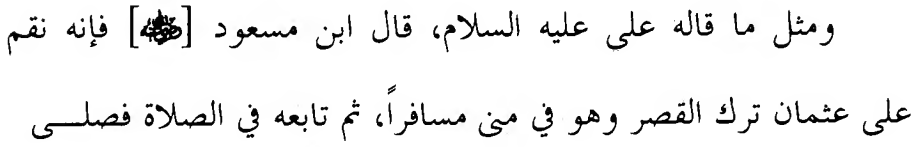 ومثل ما قاله على عليه السلام، قال ابن مسعود [رضي الله عنه] فإنه نقم
على عثمان ترك القصر وهو في منى مسافراً، ثم تابعه في الصلاة فصلـــى